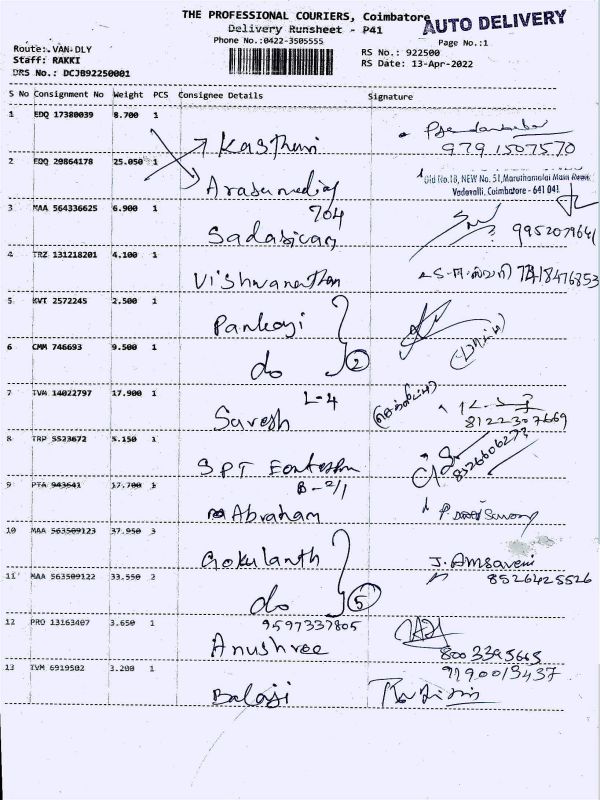 THE PROFESSIONAL COURIERS, Coimbatore
AUTO DELIVERY
Delivery Runsheet - P41
Phone No.:0422-3505555
Page No.:1
Route:.VAN-DLY
Staff: RAKKI
DRS No.: DCJB92250001
RS No.: 922500
RS Date: 13-Apr-2022
S No Consignment No Weight PCS Consignee Details Signature
1 EDQ 17380039 8.700 1
Kasthuri
9791507570
2 EDQ 29864178 25.050 1
Old No.18, NEW No. 51, Maruthamalai Main Road,
Vadavalli, Coimbatore - 641 041
3 MAA 564336625 6.900 1
704
Sadasivam 9952079641
4 TRZ 131218201 4.100 1
Vishwanathan
5 KVT 2572245 2.500 1
Pankaji
6 CMM 746693 9.500 1
do 2
7 TVM 14022797 17.900 1
L-4
Saresh 8122307669
8 TRP 5523672 5.150 1
SPT 8526606273
9 PTA 943641 17.700 1
B-2/1
Abraham
10 MAA 563509123 37.950 3
Gokulanth J. Amsaveni
11 MAA 563509122 33.550 2
8526425526
do 5
12 PRO 13163407 3.650 1
9597337805
Anushree 8003395665
13 TVM 6919502 3.200 1
9190013437
Balaji